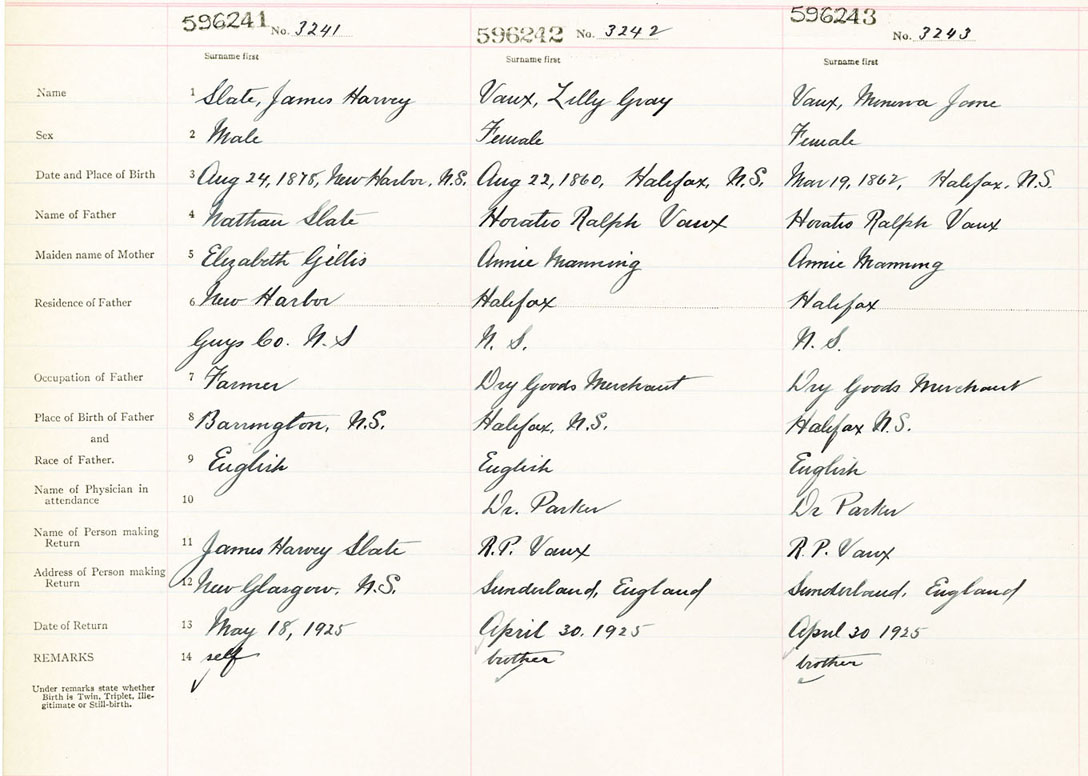 596241 No. 3241 596242 No. 3242 596243 No. 3243
Surname first Surname first Surname first
Name 1 Slate, James Harvey Vaux, Lilly Gray Vaux, Minerva Jane
Sex 2 Male Female Female
Date and Place of Birth 3 Aug 24, 1878, New Harbor, N.S. Aug 22, 1860, Halifax, N.S. Mar 19, 1862, Halifax, N.S.
Name of Father 4 Nathan Slate Horatio Ralph Vaux Horatio Ralph Vaux
Maiden name of Mother 5 Elizabeth Gillis Annie Manning Annie Manning
Residence of Father 6 New Harbor Halifax Halifax
Guys Co. N.S N. S. N. S.
Occupation of Father 7 Farmer Dry Goods Merchant Dry Goods Merchant
Place of Birth of Father 8 Barrington, N.S. Halifax, N.S. Halifax N.S.
and
Race of Father. 9 English English English
Name of Physician in
attendance 10 Dr. Parker Dr Parker
Name of Person making
Return 11 James Harvey Slate R.P. Vaux R.P. Vaux
Address of Person making
Return 12 New Glasgow, N.S. Sunderland, England Sunderland, England
Date of Return 13 May 18, 1925 April 30. 1925 April 30 1925
REMARKS 14 self brother brother
Under remarks state whether
Birth is Twin, Triplet, Ille-
gitimate or Still-birth.